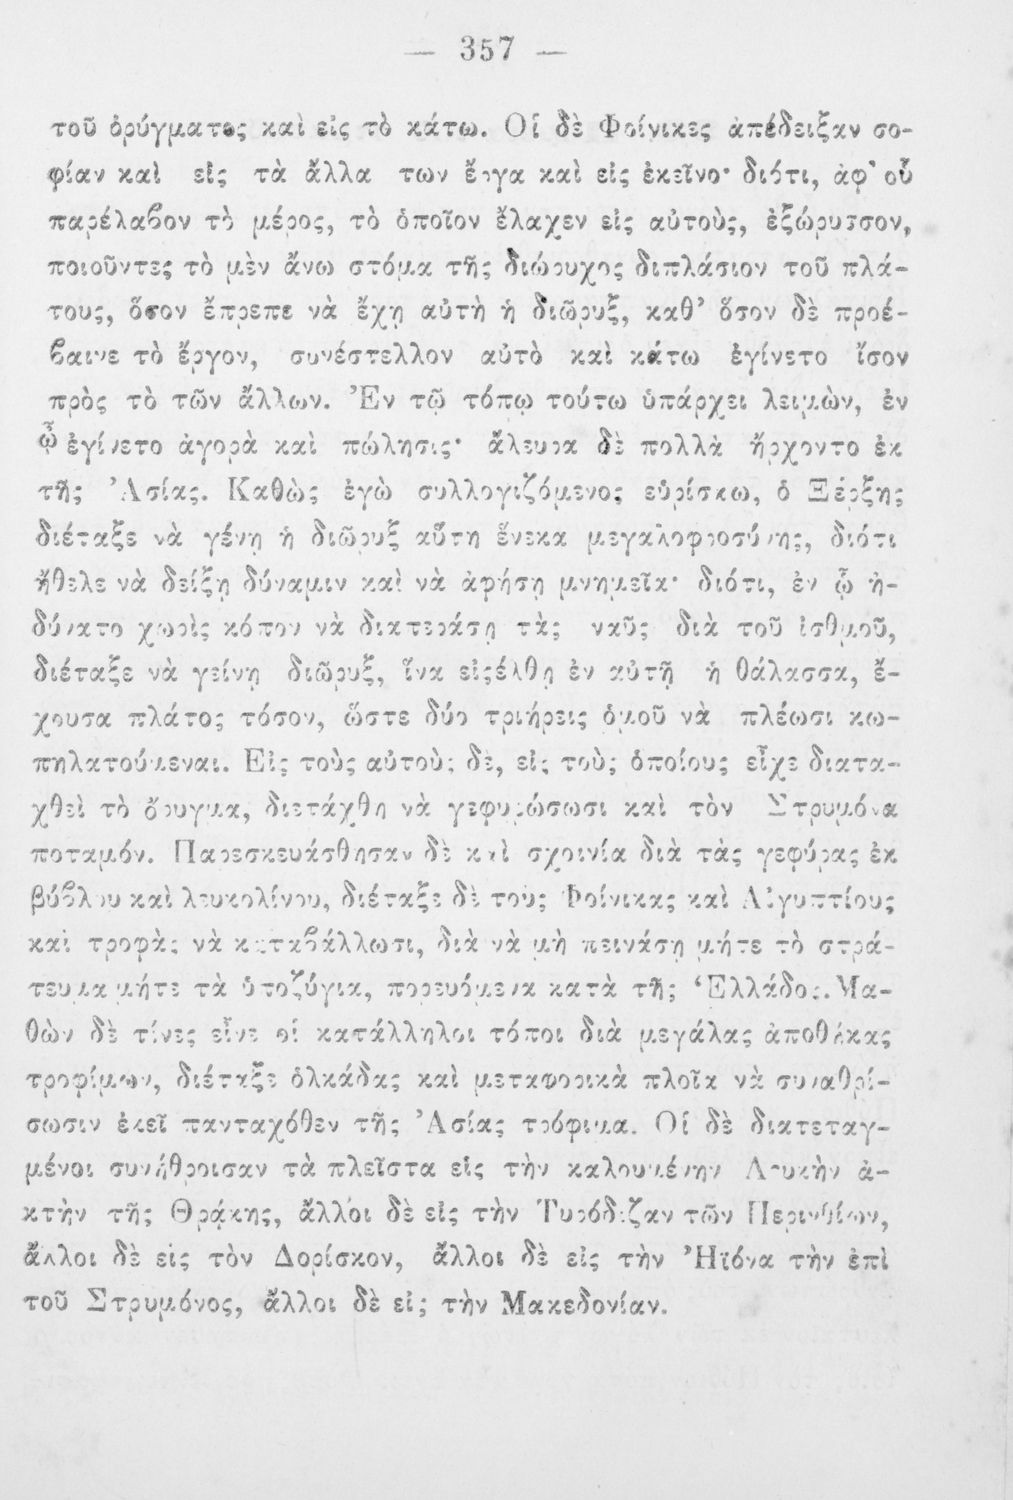 — 357 —
τοῦ ὀρύγματος καὶ εἰς τὸ κάτω. Οἱ δὲ Φοίνικες ἀπέδειξαν σο-
φίαν καὶ εἰς τὰ ἄλλα των ἔργα καὶ εἰς ἐκεῖνο· διότι, ἀφ' οὗ
παρέλαβον τὸ μέρος, τὸ ὁποῖον ἔλαχεν εἰς αὐτοὺς, ἐξώρυσσον,
ποιοῦντες τὸ μὲν ἄνω στόμα τῆς διώρυχος διπλάσιον τοῦ πλά-
τους, ὅσον ἔπρεπε νὰ ἔχῃ αὐτὴ ἡ διῶρυξ, καθ' ὅσον δὲ προέ-
βαινε τὸ ἔργον, συνέστελλον αὐτὸ καὶ κάτω ἐγίνετο ἴσον
πρὸς τὸ τῶν ἄλλων. Ἐν τῷ τόπῳ τούτῳ ὑπάρχει λειμὼν, ἐν
ᾧ ἐγίνετο ἀγορὰ καὶ πώλησις· ἄλευρα δὲ πολλὰ ἤρχοντο ἐκ
τῆς Ἀσίας. Καθὼς ἐγὼ συλλογιζόμενος εὑρίσκω, ὁ Ξέρξης
διέταξε νὰ γένῃ ἡ διῶρυξ αὕτη ἕνεκα μεγαλοφροσύνης, διότι
ἤθελε νὰ δείξῃ δύναμιν καὶ νὰ ἀφήσῃ μνημεῖα· διότι, ἐν ᾧ ἠ-
δύνατο χωρὶς κόπον νὰ διατεράσῃ τὰς ναῦς διὰ τοῦ ἰσθμοῦ,
διέταξε νὰ γείνῃ διῶρυξ, ἵνα εἰςέλθῃ ἐν αὐτῇ ἡ θάλασσα, ἔ-
χουσα πλάτος τόσον, ὥστε δύο τριήρεις ὁμοῦ νὰ πλέωσι κω-
πηλατούμεναι. Εἰς τοὺς αὐτοὺς δὲ, εἰς τοὺς ὁποίους εἶχε διατα-
χθεῖ τὸ ὄρυγμα, διετάχθη νὰ γεφυρώσωσι καὶ τὸν Στρυμόνα
ποταμόν. Παρεσκευάσθησαν δὲ καὶ σχοινία διὰ τὰς γεφύρας ἐκ
βύβλου καὶ λευκολίνου, διέταξε δὲ τοὺς Φοίνικας καὶ Αἰγυπτίους
καὶ τροφὰς νὰ καταβάλλωσι, διὰ νὰ μὴ πεινάσῃ μήτε τὸ στρά-
τευμα μήτε τὰ ὑποζύγια, πορευόμενα κατὰ τῆς Ἑλλάδος. Μα-
θὼν δὲ τίνες εἶνε οἱ κατάλληλοι τόποι διὰ μεγάλας ἀποθήκας
τροφίμων, διέταξε ὁλκάδας καὶ μεταφορικὰ πλοῖα νὰ συναθρί-
σωσιν ἐκεῖ πανταχόθεν τῆς Ἀσίας τρόφιμα. Οἱ δὲ διατεταγ-
μένοι συνήθροισαν τὰ πλεῖστα εἰς τὴν καλουμένην Λευκὴν ἀ-
κτὴν τῆς Θρᾴκης, ἄλλοι δὲ εἰς τὴν Τυρόδιζαν τῶν Περινθίων,
ἄλλοι δὲ εἰς τὸν Δορίσκον, ἄλλοι δὲ εἰς τὴν Ἠϊόνα τὴν ἐπὶ
τοῦ Στρυμόνος, ἄλλοι δὲ εἰς τὴν Μακεδονίαν.